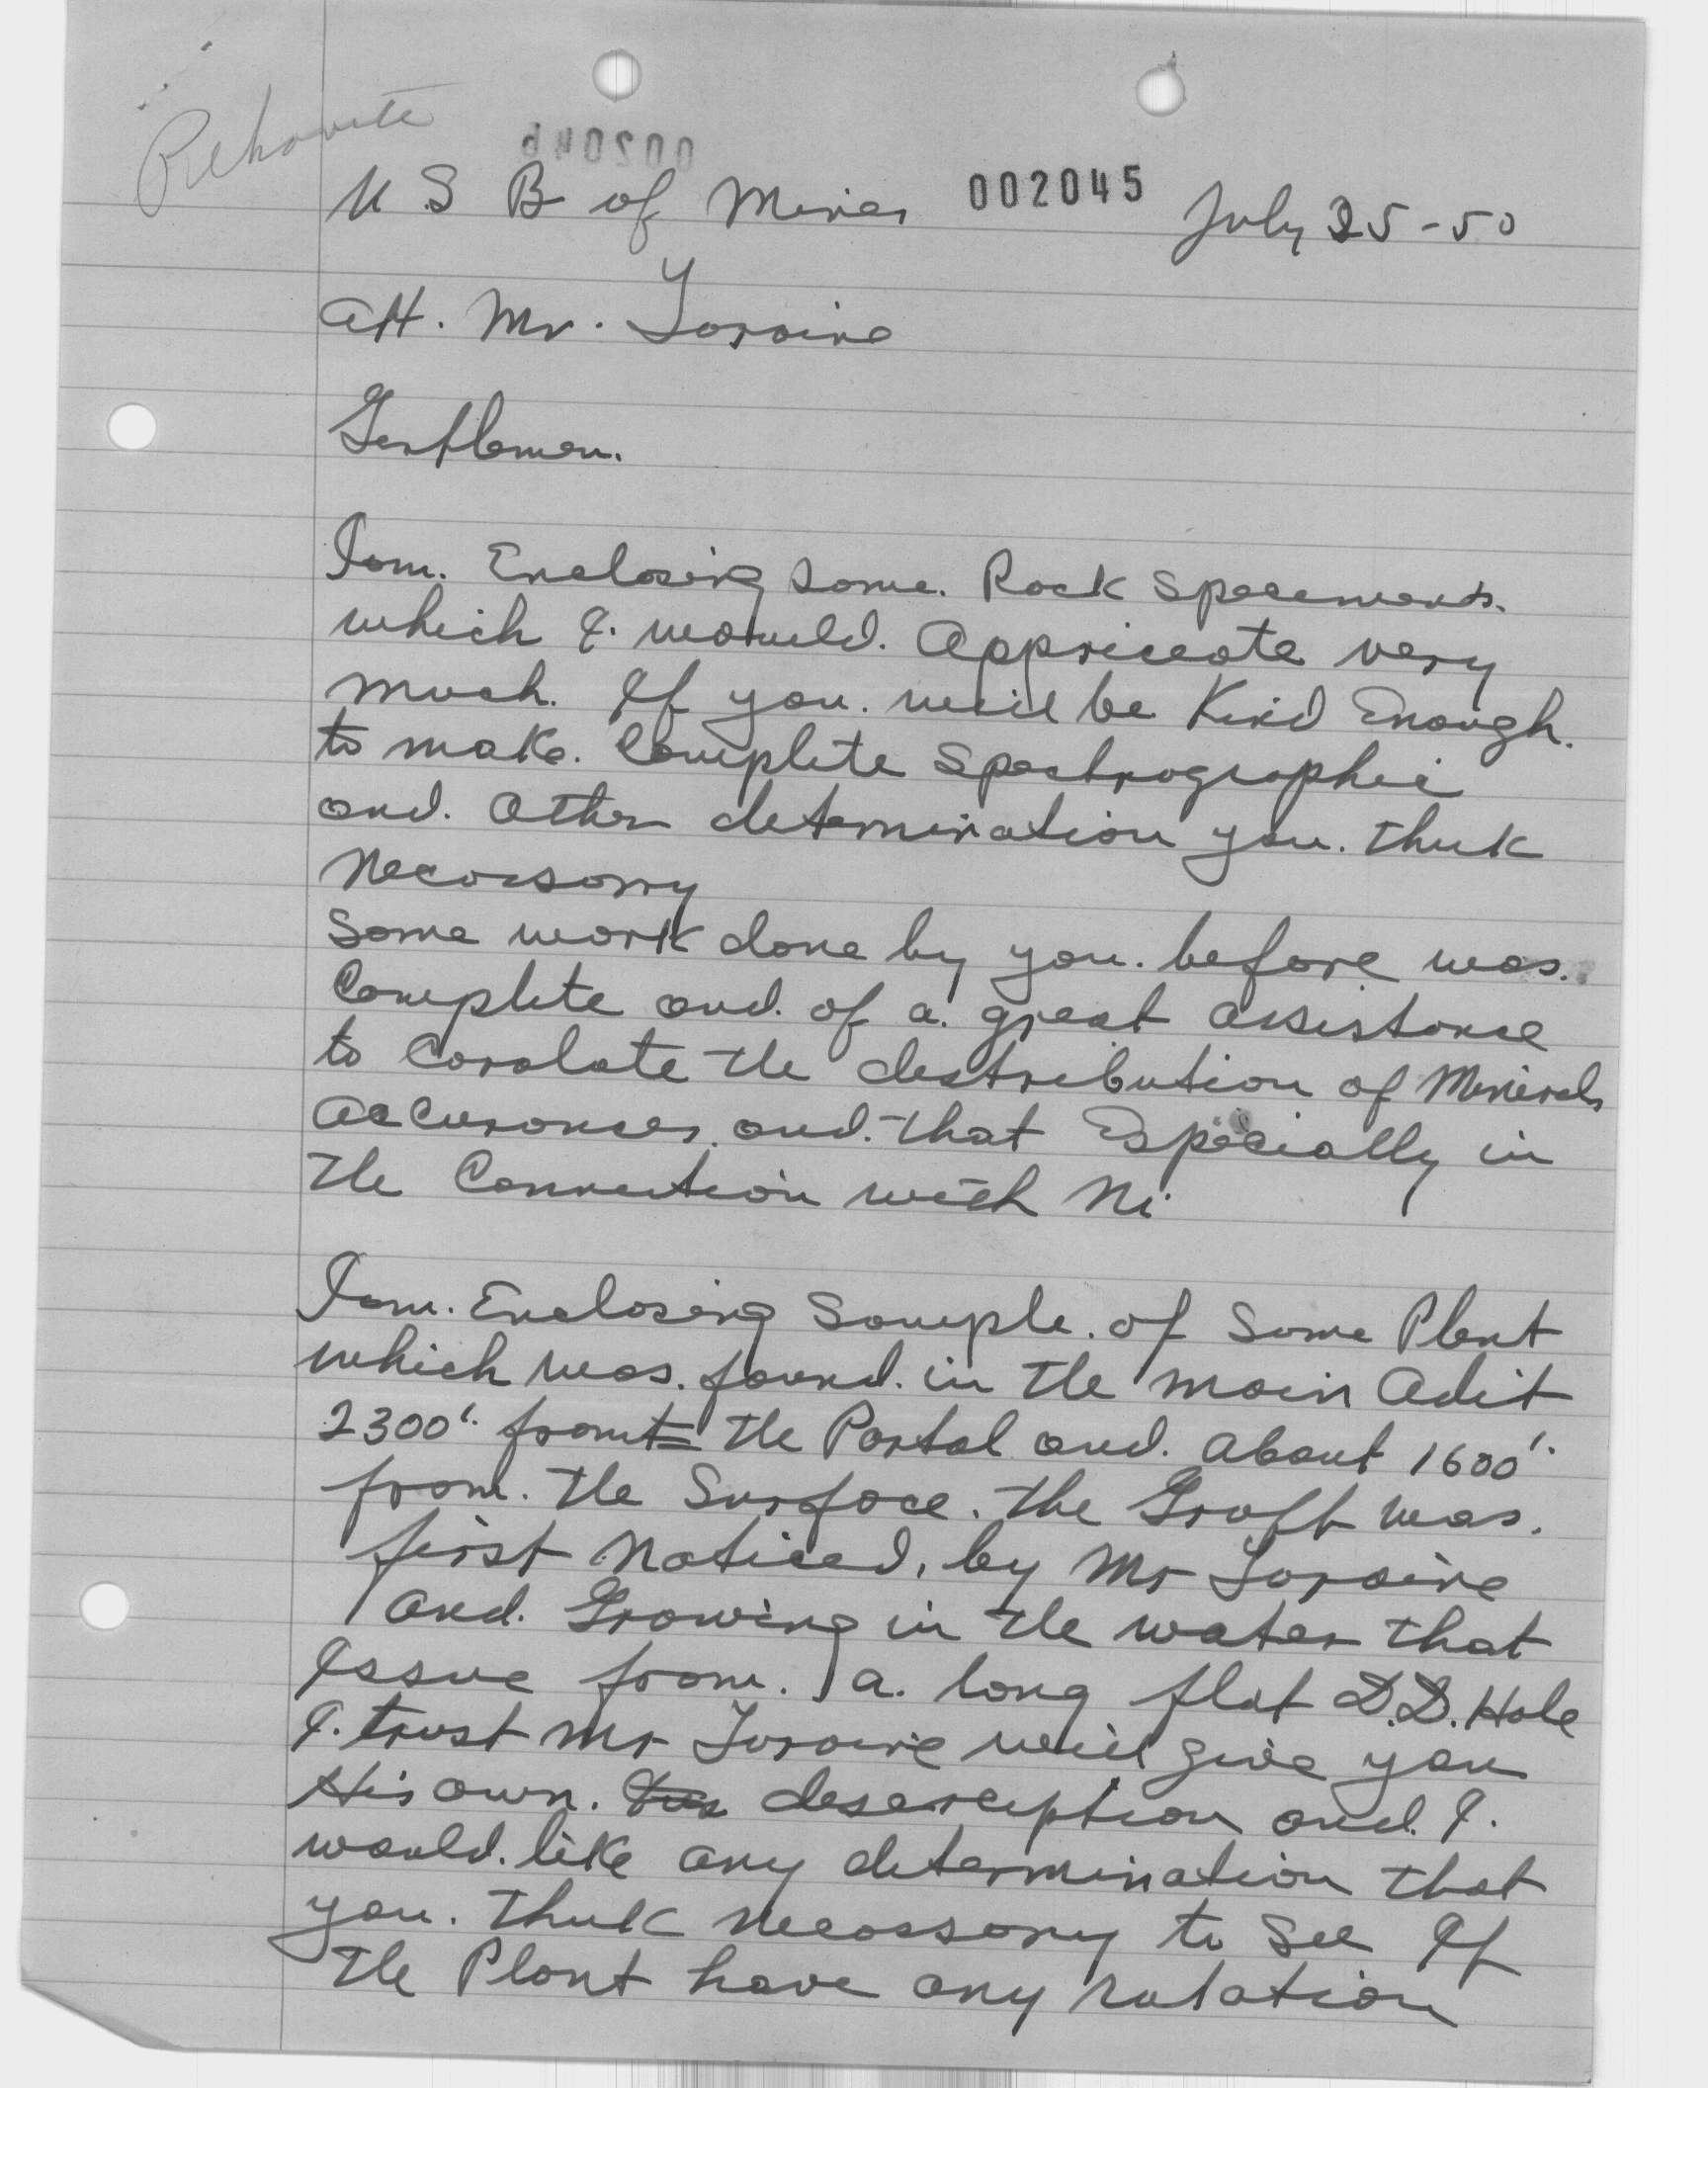 Rehovite
002044
U S B of Mines 002045 July 25-50
att. Mr. Loraine
Gentlemen.
I am. Enclosing some. Rock Specements.
which I. would. Appriceate very
much. If you. will be Kind Enough.
to make. Complete Spectrographic
and. Other determination you. think
Necessary
Some work done by you. before was.
Complete and. of a. great assistance
to Coralate the destribution of Minerals
accurances. and. that Especially in
the Connection with Ni
I am. Enclosing Sample. of Some Plant
which was. found. in the main Adit
2300'. from the Portal and. about 1600'.
from. the Surface. the Groft was.
first Noticed, by Mr Loraine
and. Growing in the water that
Issue from. a. long flat D.D. Hole
I. trust Mr Loraine will give you
His own. desereiption and. I.
would. like any determination that
you. think Necossory to See If
the Plant have any relation